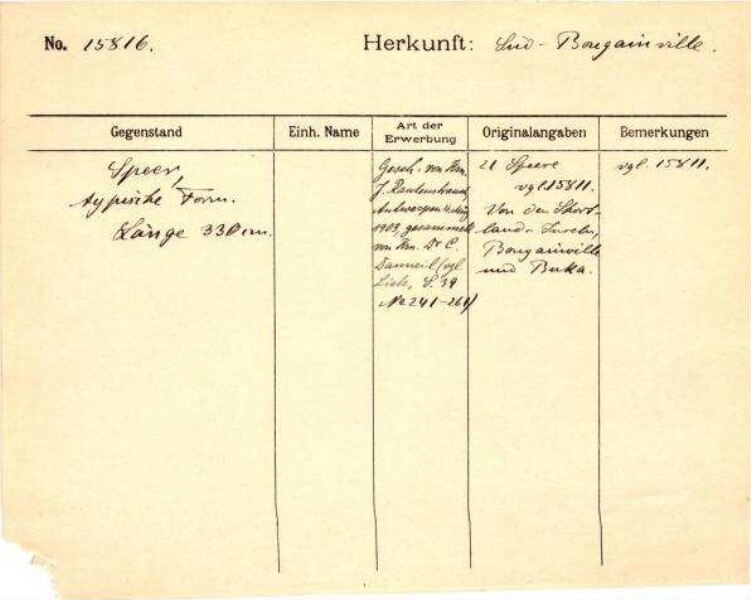 No. 15816.
Herkunft: Süd-Bougainville.
Gegenstand
Einh. Name
Art der Erwerbung
Originalangaben
Bemerkungen
Speer,
typische Form.
Länge 330 cm.
Gesch. von Hrn.
J. Rautenstrauch,
Antwerpen
1903, gesammelt
von Hrn. Dr C.
Danneil (vgl
Liste, S. 39
No 241-261)
21 Speere
vgl 15811.
Von den Short-
land-Inseln,
Bougainville
und Buka.
vgl. 15811.